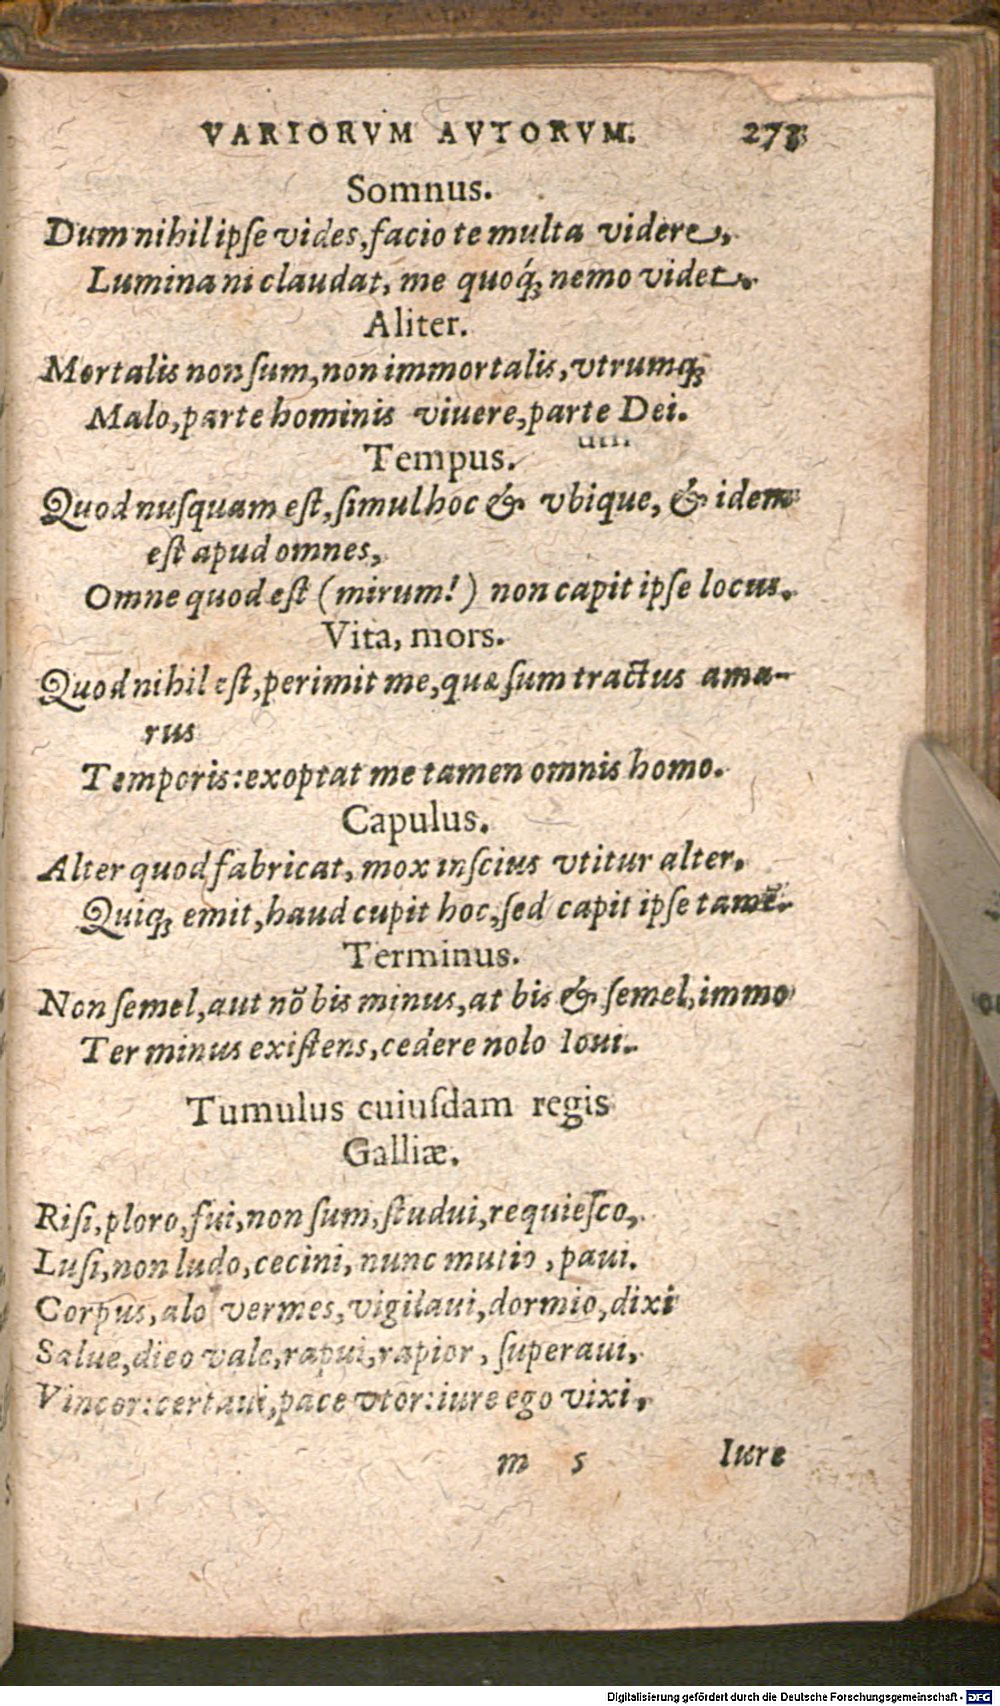 VARIORVM AVTORVM. 273
Somnus.
Dum nihil ipſe vides, facio te multa videre,
Lumina ni claudat, me quoq́ꝫ nemo videt.
Aliter.
Mortalis non ſum, non immortalis, vtrumqꝫ
Malo, parte hominis viuere, parte Dei.
Tempus.
Quod nuſquam eſt, ſimul hoc & vbique, & idem
eſt apud omnes,
Omne quod eſt (mirum!) non capit ipſe locus.
Vita, mors.
Quod nihil eſt, perimit me, quæ ſum tractus ama-
rus
Temporis: exoptat me tamen omnis homo.
Capulus.
Alter quod fabricat, mox inſcius vtitur alter.
Quiqꝫ emit, haud cupit hoc, ſed capit ipſe tamē.
Terminus.
Non ſemel, aut nō bis minus, at bis & ſemel, immo
Ter minus exiſtens, cedere nolo Ioui.
Tumulus cuiuſdam regis
Galliæ.
Riſi, ploro, fui, non ſum, ſtudui, requieſco,
Luſi, non ludo, cecini, nunc mutio, paui.
Corpus, alo vermes, vigilaui, dormio, dixi
Salue, dico vale, rapui, rapior, ſuperaui,
Vincor: certaui, pace vtor: iure ego vixi,
m 5 Iure
Digitalisierung gefördert durch die Deutsche Forschungsgemeinschaft - DFG